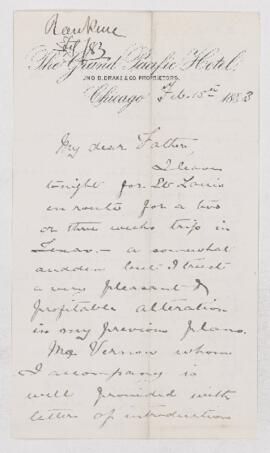 Rankine
Feb/83
The Grand Pacific Hotel.
JNO B. DRAKE & CO PROPRIETORS.
Chicago Feb. 15th 1883
My dear Father,
I leave
tonight for St Louis
en route for a two
or three weeks trip in
Texas. - a somewhat
sudden but I trust
a very pleasant &
profitable alteration
in my previous plans.
Mr Vernon whom
I accompany is
well provided with
letters of introduction